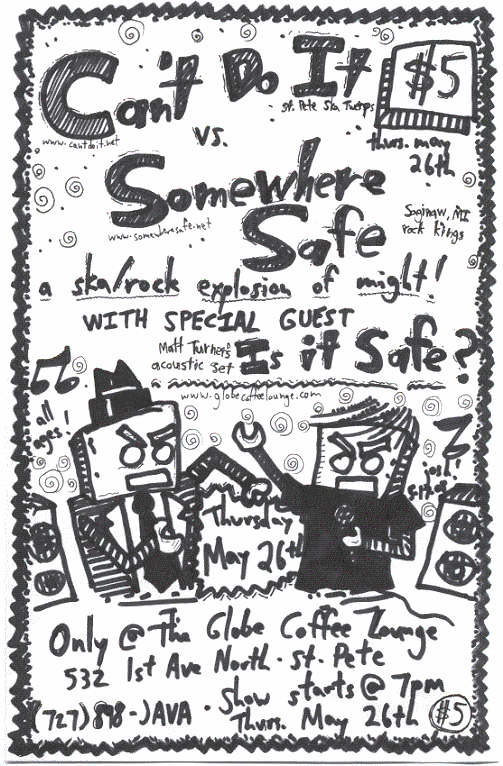 Can't Do It
$5
St. Pete Ska Twerps
www.cantdoit.net
vs.
thurs. may
26th
Somewhere
Safe
www.somewheresafe.net
Saginaw, MI
rock kings
a ska/rock explosion of might!
WITH SPECIAL GUEST
Matt Turner's
acoustic set
Is it Safe?
www.globecoffeelounge.com
all
ages!
josh!
Thursday
May 26th
Only @ The Globe Coffee Lounge
532 1st Ave North · St. Pete
(727) 898-JAVA · Show starts @ 7pm
Thurs. May 26th
$5